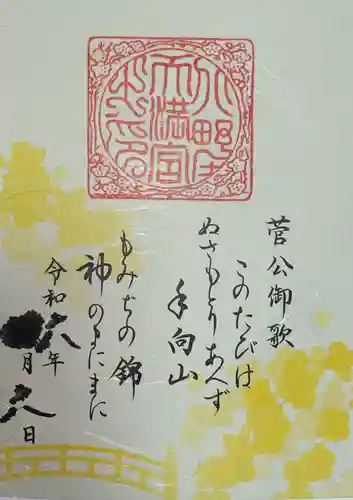 小野庄
天満宮
之印
菅公御歌
このたびは
ぬさもとりあへず
手向山
もみぢの錦
神のまにまに
令和八年
月八日